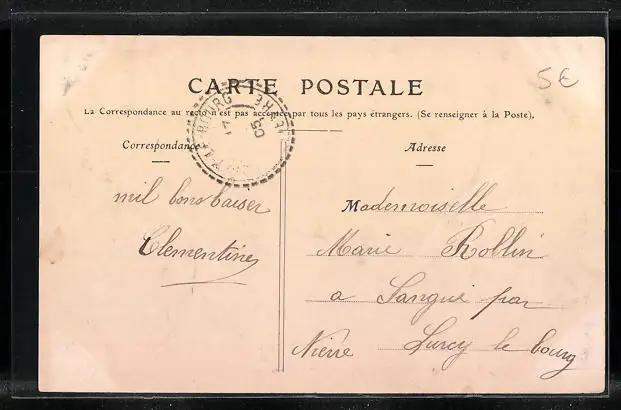 5€
CARTE POSTALE
La Correspondance au recto n'est pas acceptée par tous les pays étrangers. (Se renseigner à la Poste),
Correspondance
Adresse
mil bons baiser
Clementine
Mademoiselle
Marie Rollin
a Sangué par
Lurcy le bourg
Nièvre